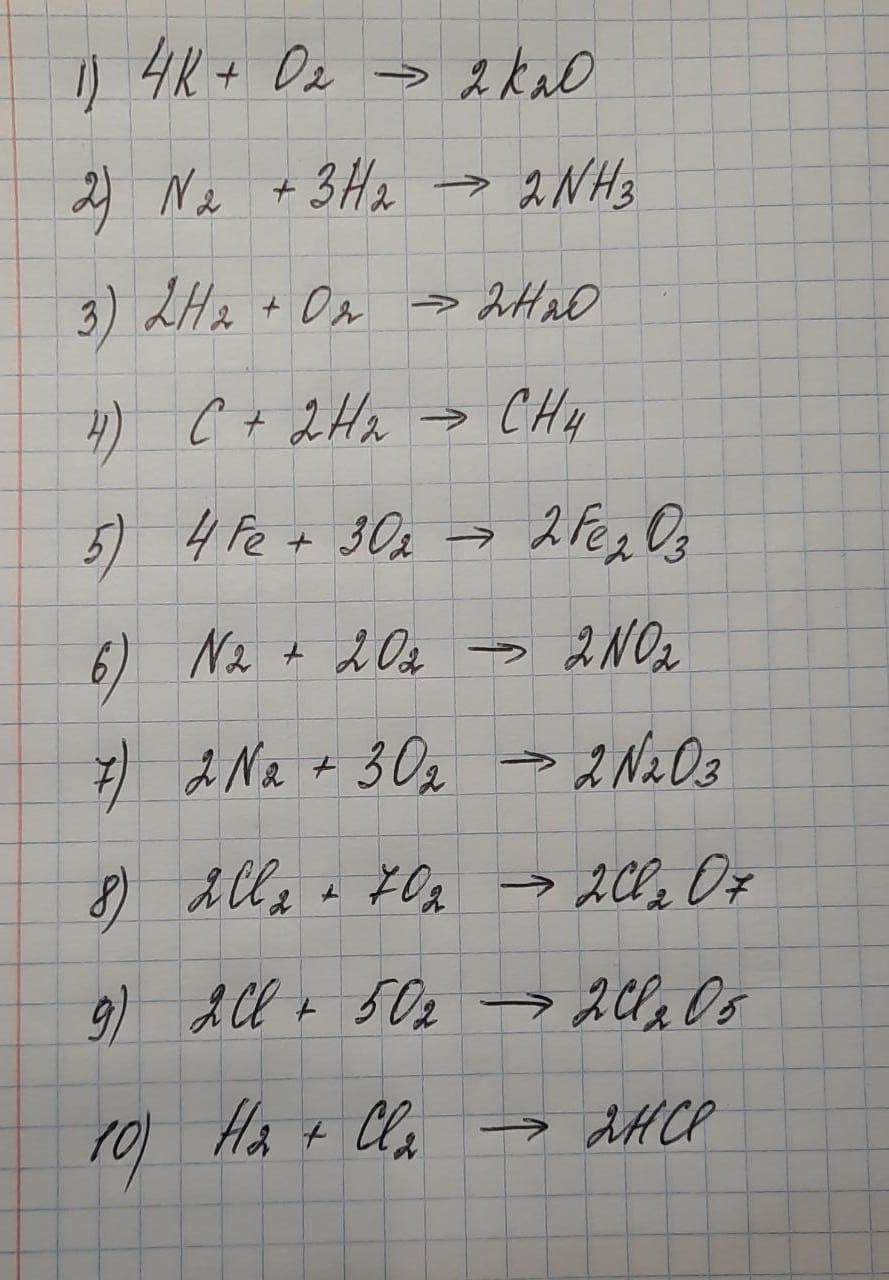 1) 4K + O2 → 2K2O
2) N2 + 3H2 → 2NH3
3) 2H2 + O2 → 2H2O
4) C + 2H2 → CH4
5) 4Fe + 3O2 → 2Fe2O3
6) N2 + 2O2 → 2NO2
7) 2N2 + 3O2 → 2N2O3
8) 2Cl2 + 7O2 → 2Cl2O7
9) 2Cl + 5O2 → 2Cl2O5
10) H2 + Cl2 → 2HCl